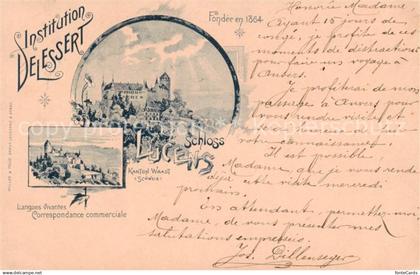 Institution
DELESSERT
Fondée en 1864
Schloss
LUCENS
KANTON WAADT
(SCHWEIZ)
Langues Vivantes
Correspondance commerciale
Honorée Madame
Ayant 15 jours de
congé, je profite de ces
moments de distractions
pour faire un voyage à
Anvers.
Je profiterai de mon
passage à Anvers pour
vous rendre visite et
votre connaissance.
Il est possible
Madame, que je vous rende
déjà cette visite mercredi
prochain.
En attendant, permettez-moi
Madame, de vous présenter mes
salutations empressées.
Jos. Dillenseger